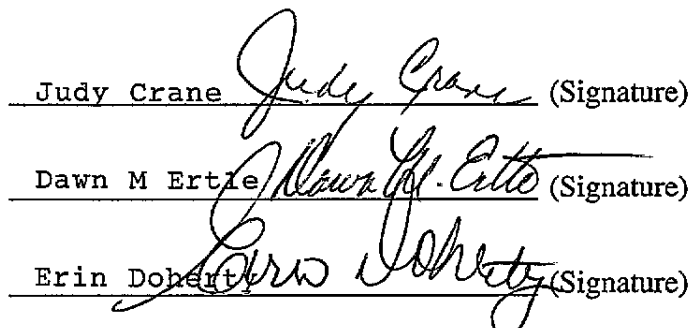 Judy Crane Judy Crane (Signature)
Dawn M Ertle Dawn M. Ertle (Signature)
Erin Doherty Erin Doherty (Signature)